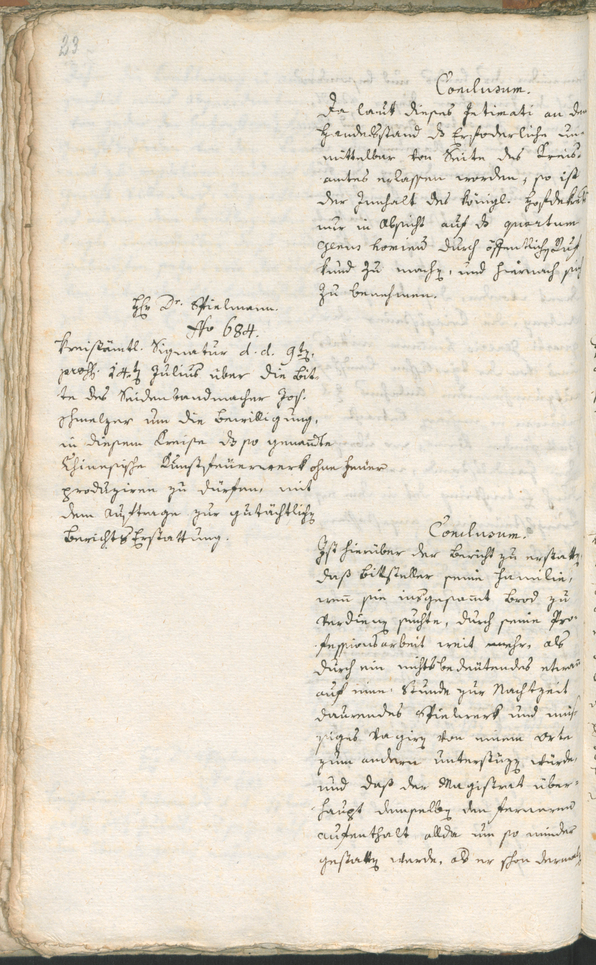 23
Conclusum.
Da laut dieses Intimati an den
Handelsstand ds Erforderliche un-
mittelbar von Seite des Kreis-
amtes erlassen worden, so ist
der Innhalt des königl. Hofdekrets
nur in Absicht auf ds quartum
genus hominum durch öffentlichen Ruf
kund zu machen, und hiernach sich
zu benehmen.
Hr Dr. Spielmann.
No 684.
Kreisämtl. Signatur d. d. 9ten
praes. 14ten Julius über die Bit-
te des Seidenbandmacher Jos.
Schmelzer um die Bewilligung,
in diesem Kreise ds so genannte
Chinesische Kunstfeuerwerk ohne Feuer
produziren zu dürfen, mit
dem Auftrage zur gutächtlichen
Berichts Erstattung.
Conclusum.
Ist hierüber der Bericht zu erstatten,
daß Bittsteller seine Familie,
wenn sie insgesammt Brod zu
verdienen suchte, durch seine Pro-
fessionsarbeit weit mehr, als
durch ein nichtsbedeutendes etwa
auf eine Stunde zur Nachtzeit
daurendes Spielwerk und müs-
siges Vagiren von einem Orte
zum andern unterstüzen würde,
und daß der Magistrat über-
haupt demselben den fernern
Aufenthalt allda um so minder
gestatten werde, als er schon dermal